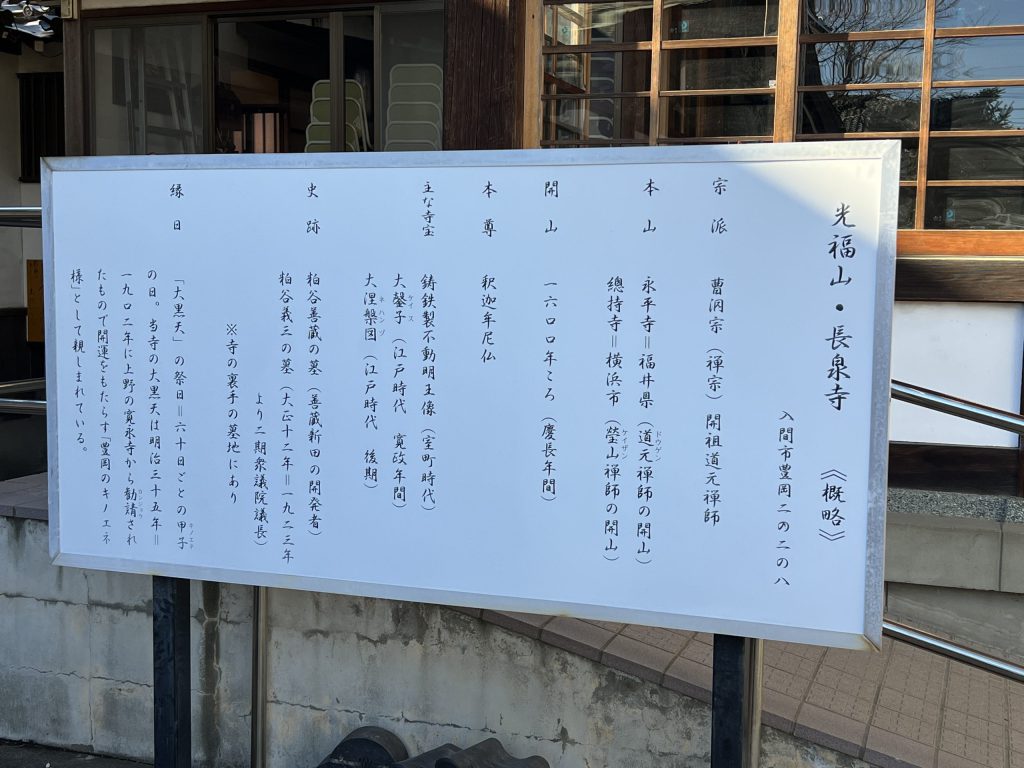 光福山・長泉寺 《概略》
入間市豊岡二の二の八
宗派 曹洞宗(禅宗)開祖道元禅師
本山 永平寺=福井県(道元禅師の開山)
ドウゲン
總持寺=横浜市(瑩山禅師の開山)
ケイザン
開山 一六〇〇年ころ(慶長年間)
本尊 釈迦牟尼仏
主な寺宝 鋳鉄製不動明王像(室町時代)
大磬子(江戸時代 寛政年間)
ケイス
大涅槃図(江戸時代 後期)
ネハンヅ
史跡 粕谷善蔵の墓(善蔵新田の開発者)
粕谷義三の墓(大正十二年=一九二三年
より二期衆議院議長)
※寺の裏手の墓地にあり
縁日 「大黒天」の祭日=六十日ごとの甲子
キノエネ
の日。当寺の大黒天は明治三十五年=
一九〇二年に上野の寛永寺から勧請され
カンジョウ
たもので開運をもたらす「豊岡のキノエネ
様」として親しまれている。